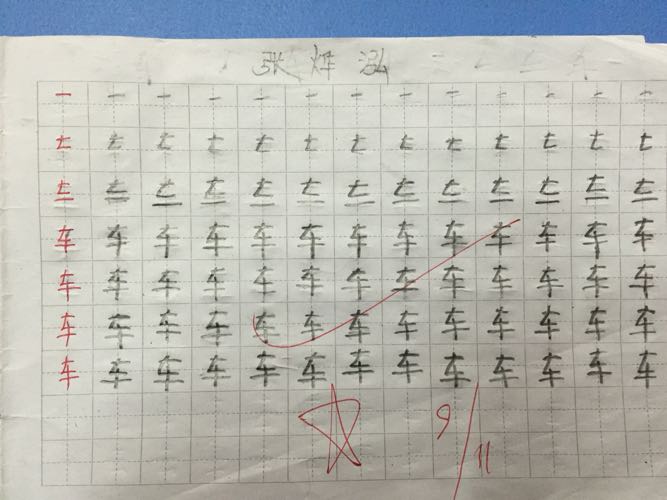 张烨泓
一 一 一 一 一 一 一 一 一 一 一 一 一
车 车 车 车 车 车 车 车 车 车 车 车 车
车 车 车 车 车 车 车 车 车 车 车 车 车
车 车 车 车 车 车 车 车 车 车 车 车 车
车 车 车 车 车 车 车 车 车 车 车 车 车
9/11